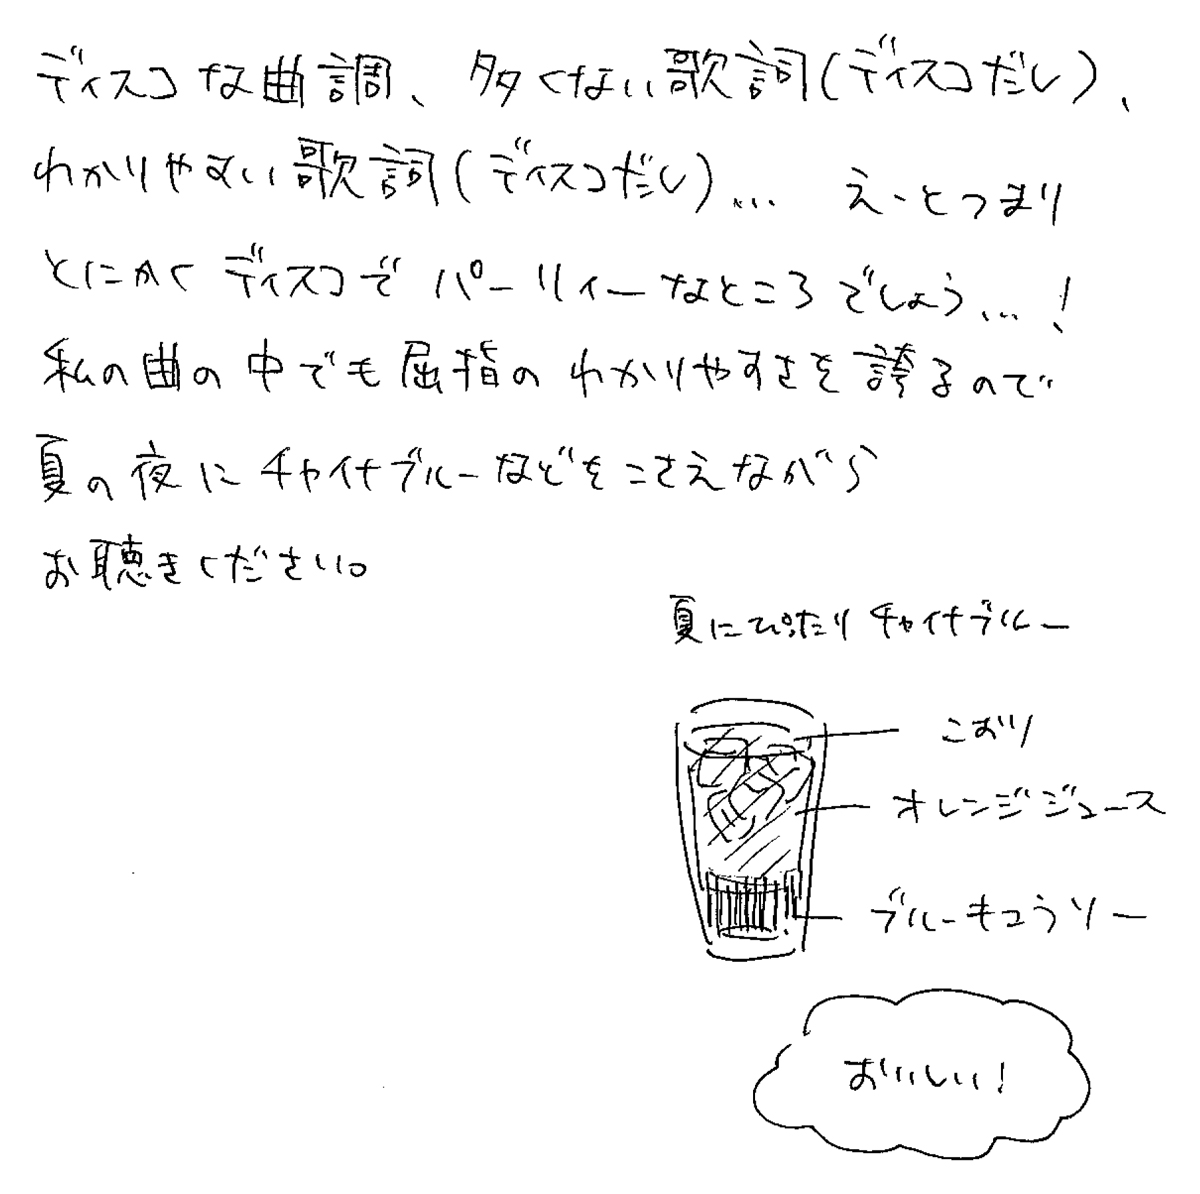 ディスコな曲調、多くない歌詞(ディスコだし)、
わかりやすい歌詞(ディスコだし)… えーとつまり
とにかくディスコでパーリィーなところでしょう…!
私の曲の中でも屈指のわかりやすさを誇るので
夏の夜にチャイナブルーなどをこさえながら
お聴きください。
夏にぴったりチャイナブルー
こおり
オレンジジュース
ブルーキュラソー
おいしい!